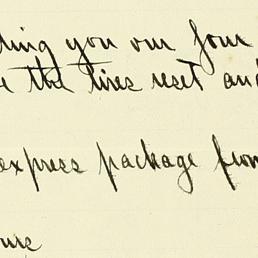 ding you our four
the tires reset and
express package from